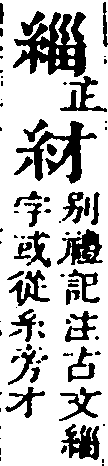 緇
正
䊷
別禮記注古文緇
字或從糸旁才